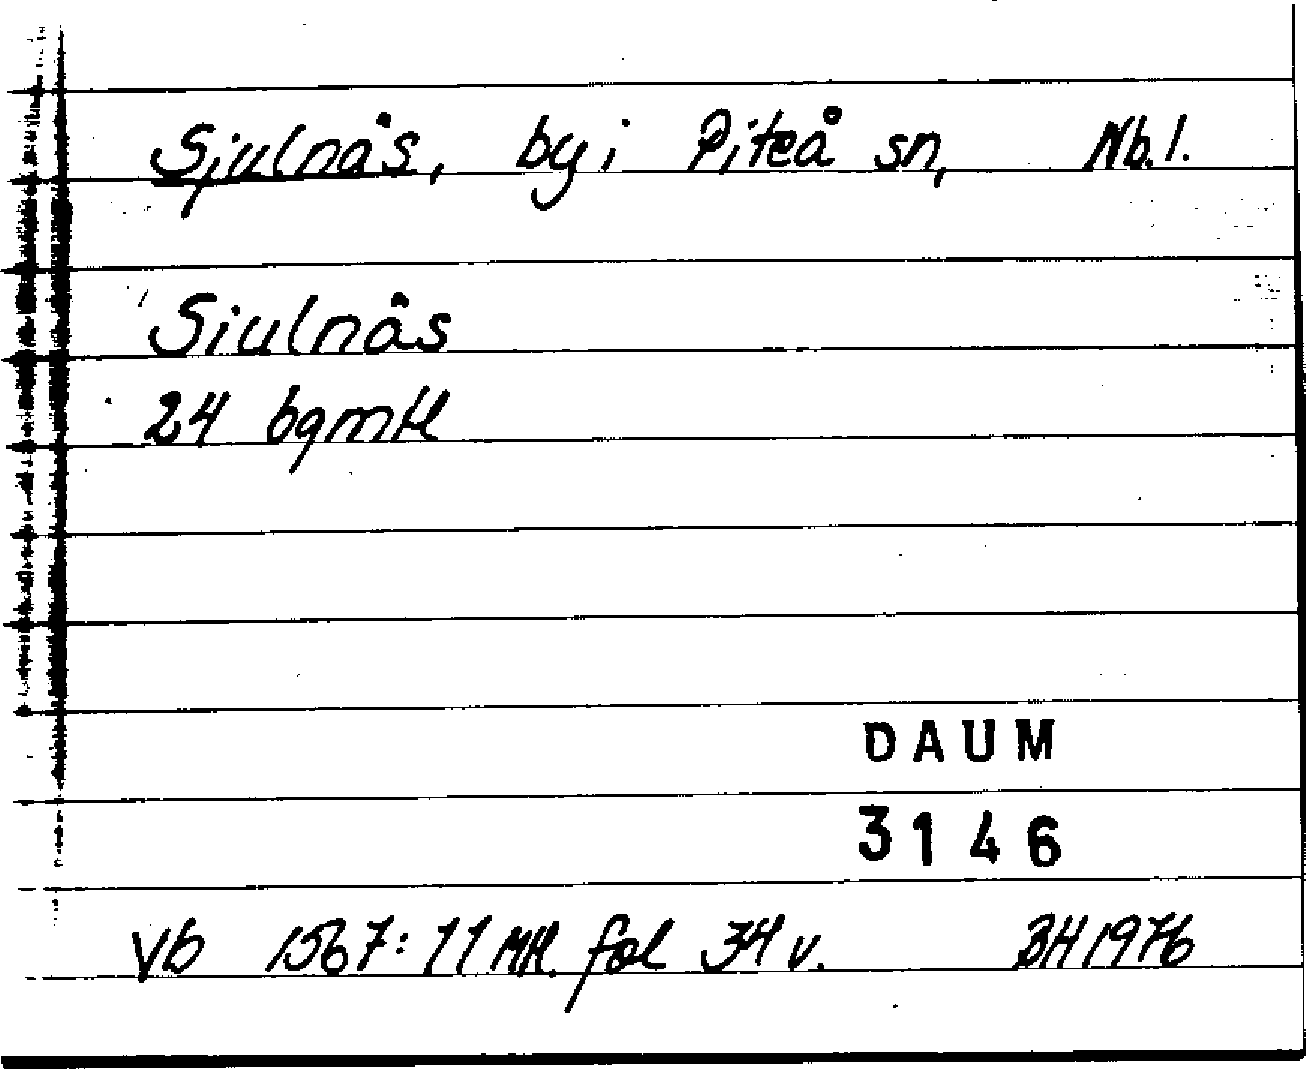 Sjulnäs, by i Piteå sn, Nb.l.
Siulnäs
24 bgmtl
DAUM
3146
Vb 1567:11 Mtl. fol 34 v. BH 1976